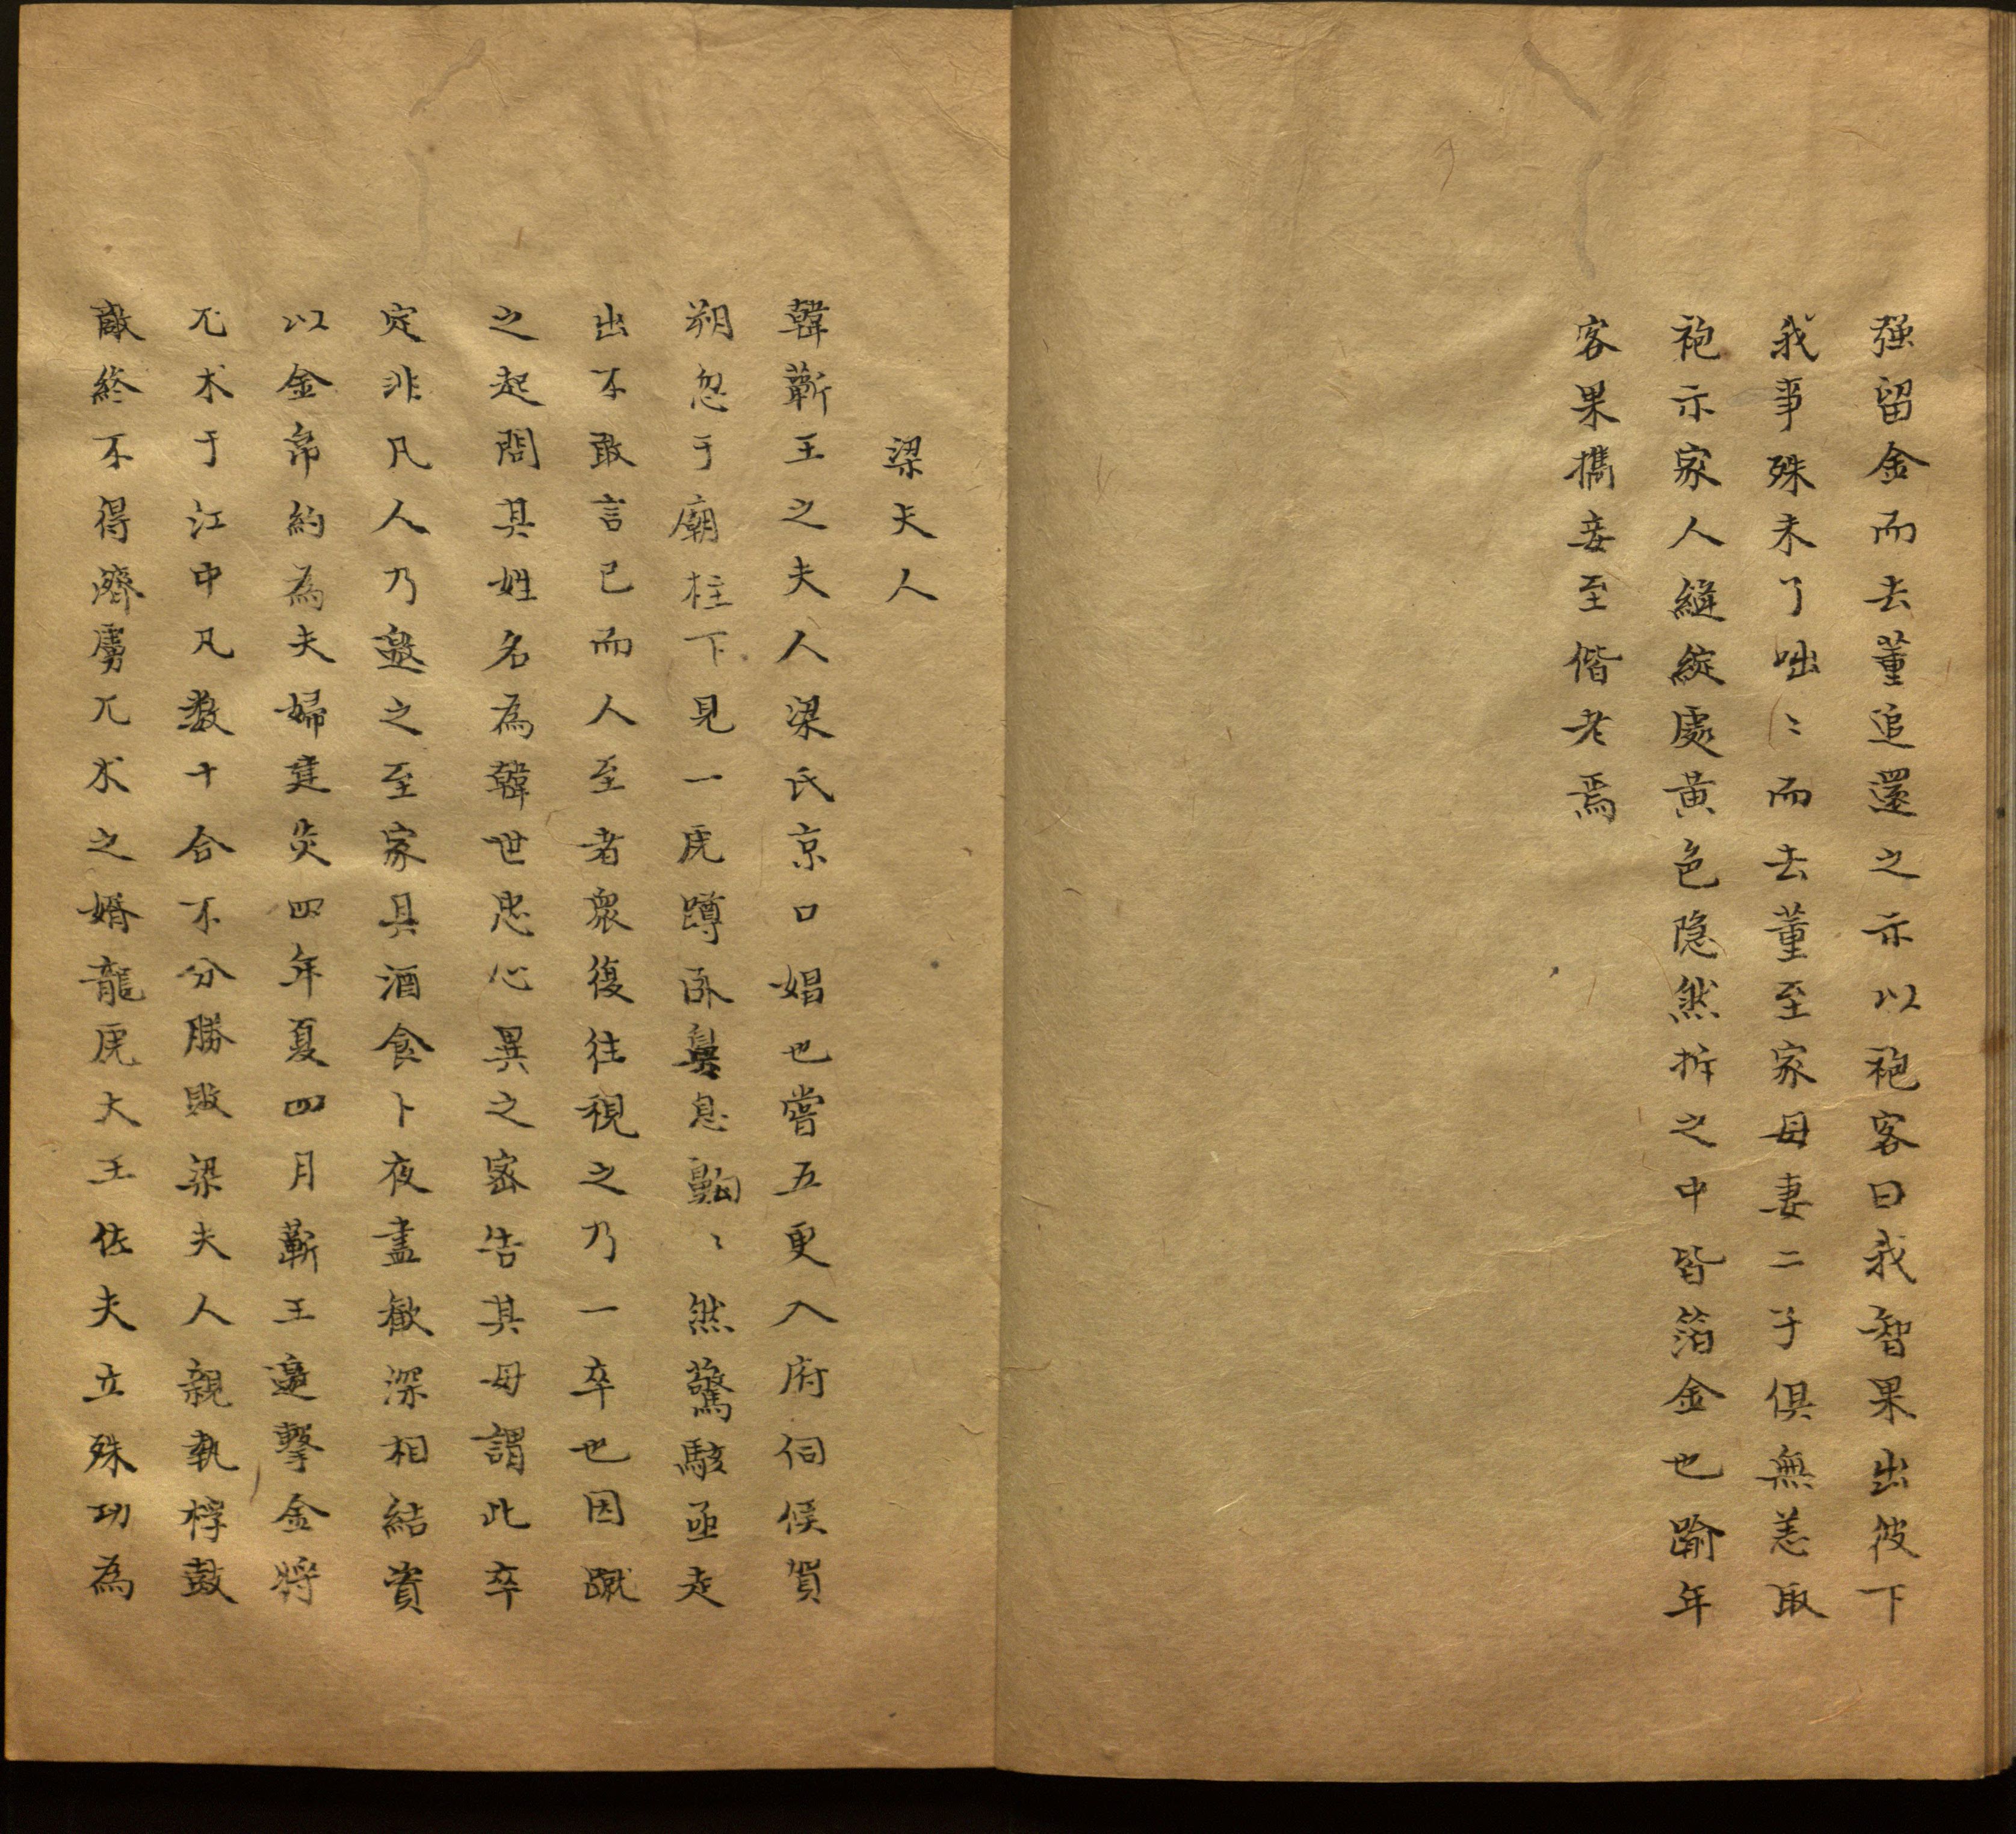 强留金而去董追還之示以袍客曰我智果出彼下
我事殊未了咄〻而去董至家母妻二子俱無恙取
袍示家人縫綻處黄色隐然拆之中皆箔金也踰年
客果攜妾至偕老焉
梁夫人
韓蘄王之夫人梁氏京口娼也嘗五更入府伺候賀
朔忽于廟柱下見一虎蹲卧鼻息齁〻然驚駭亟走
出不敢言已而人至者衆復往視之乃一卒也因蹴
之起問其姓名為韓世忠心異之密告其母謂此卒
定非凡人乃邀之至家具酒食卜夜盡歡深相結資
以金帛約為夫婦建炎四年夏四月蘄王邀擊金將
兀朮于江中凡数十合不分勝敗梁夫人親執桴鼓
敵終不得濟虜兀朮之婿龍虎大王佐夫立殊功為